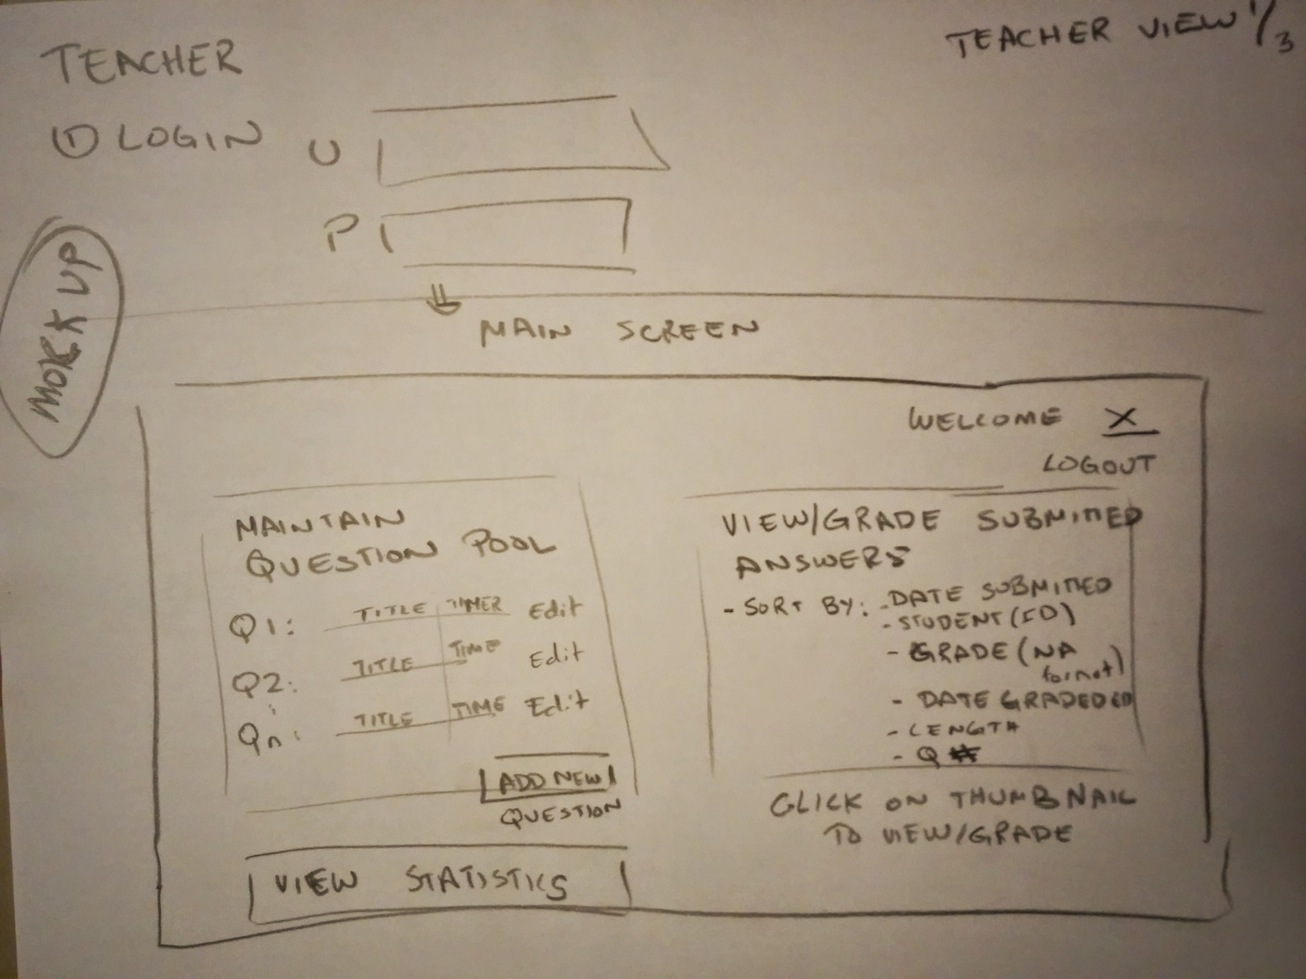 TEACHER
TEACHER VIEW 1/3
① LOGIN
U
P
MOCK UP
MAIN SCREEN
WELCOME X
LOGOUT
MAINTAIN
QUESTION POOL
Q1: TITLE TIMER Edit
Q2: TITLE TIME Edit
Qn: TITLE TIME Edit
ADD NEW
QUESTION
VIEW STATISTICS
VIEW/GRADE SUBMITTED
ANSWERS
- SORT BY: - DATE SUBMITTED
- STUDENT (ID)
- GRADE (NA
format)
- DATE GRADEDED
- LENGTH
- Q #
CLICK ON THUMBNAIL
TO VIEW/GRADE